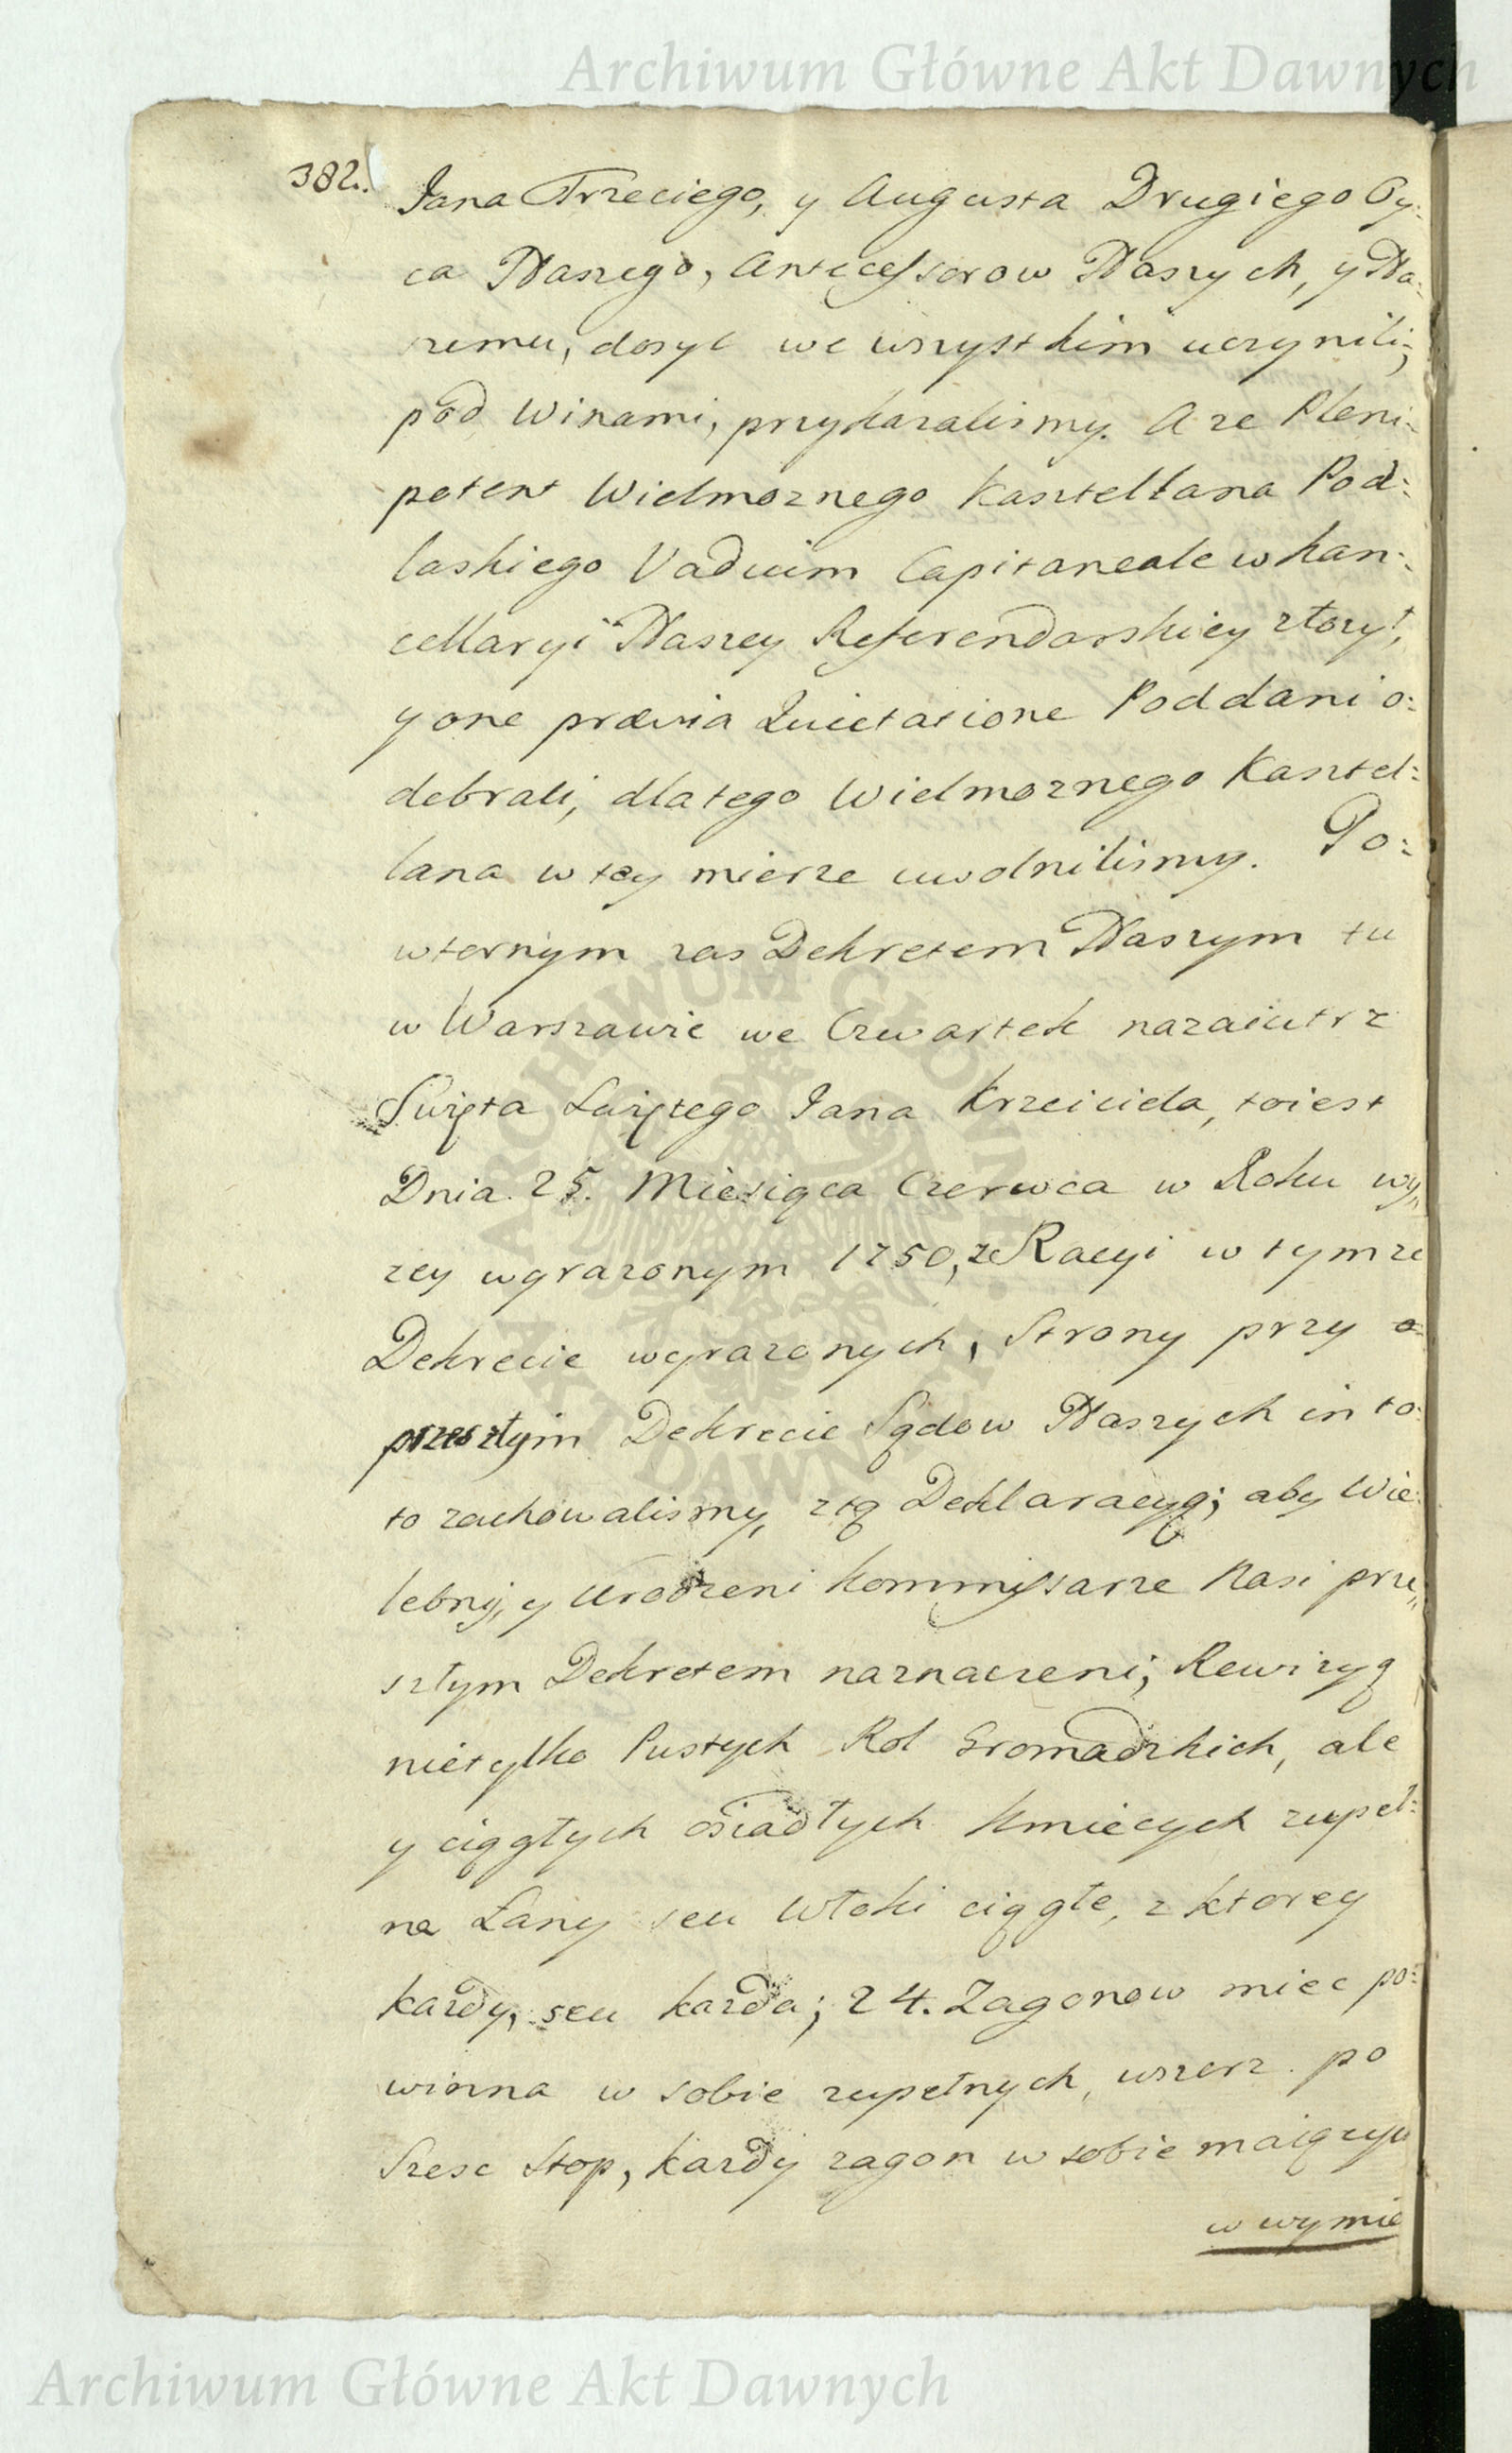 Archiwum Główne Akt Dawnych
382. Jana Trzeciego, y Augusta Drugiego Oy:
ca Naszego, Antecessorow Naszych, y Na:
szemu, dosyc we wszystkim uczynili;
pod Winami, przykazalismy. A ze Pleni:
potent Wielmoznego Kasztellana Pod:
laskiego Vadium Capitaneale w Kan:
cellaryi Naszey Referendarskiey złozył,
y one prævia Quietatione Poddani o:
debrali, dlatego Wielmoznego Kasztel:
lana w tey mierze uwolnilismy. Po:
wtornym zas Dekretem Naszym tu
w Warszawie we Czwartek nazaiutrz
Swięta Swiętego Jana Krzciciela, toiest
Dnia 25. Miesiąca Czerwca w Roku wy„
zey wyrazonym 1750, ze Racyi w tymze
Dekrecie wyrazonych, Strony przy o:
przeszłym Dekrecie Sądow Naszych in to:
to zachowalismy, ztą Deklaracyą; aby Wie:
lebny, y Urodzeni Kommissarze Nasi prze„
szłym Dekretem naznaczeni; Rewizyą
nietylko Pustych Rol Gromadzkich, ale
y ciągłych osiadłych Kmiecych zupeł:
ne Łany seu Włoki ciągłe, z ktorey
kazdy, seu kazda; 24. Zagonow miec po:
winna w sobie zupełnych, wszerz po
Szesc Stop, kazdy zagon w sobie maiących
w wymie
ARCHIWUM GŁÓWNE AKT DAWNYCH
Archiwum Główne Akt Dawnych